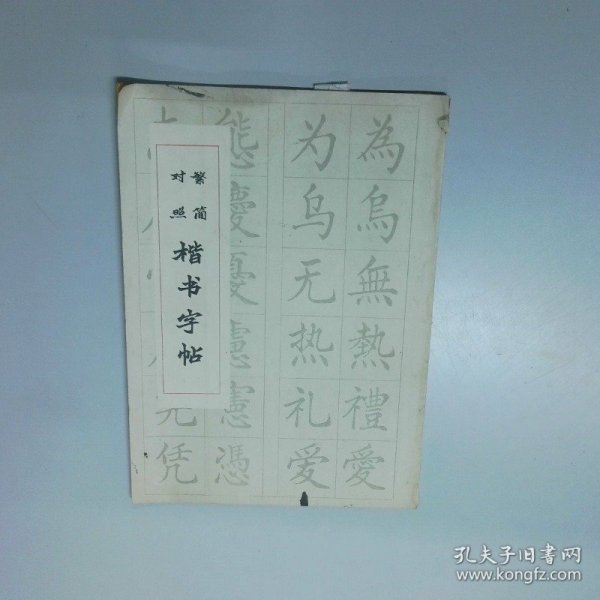 繁简
对照
楷书字帖
為烏無熱禮愛
为乌无热礼爱
態慶憂慮憲憑
凭
孔夫子旧书网
www.kongfz.com